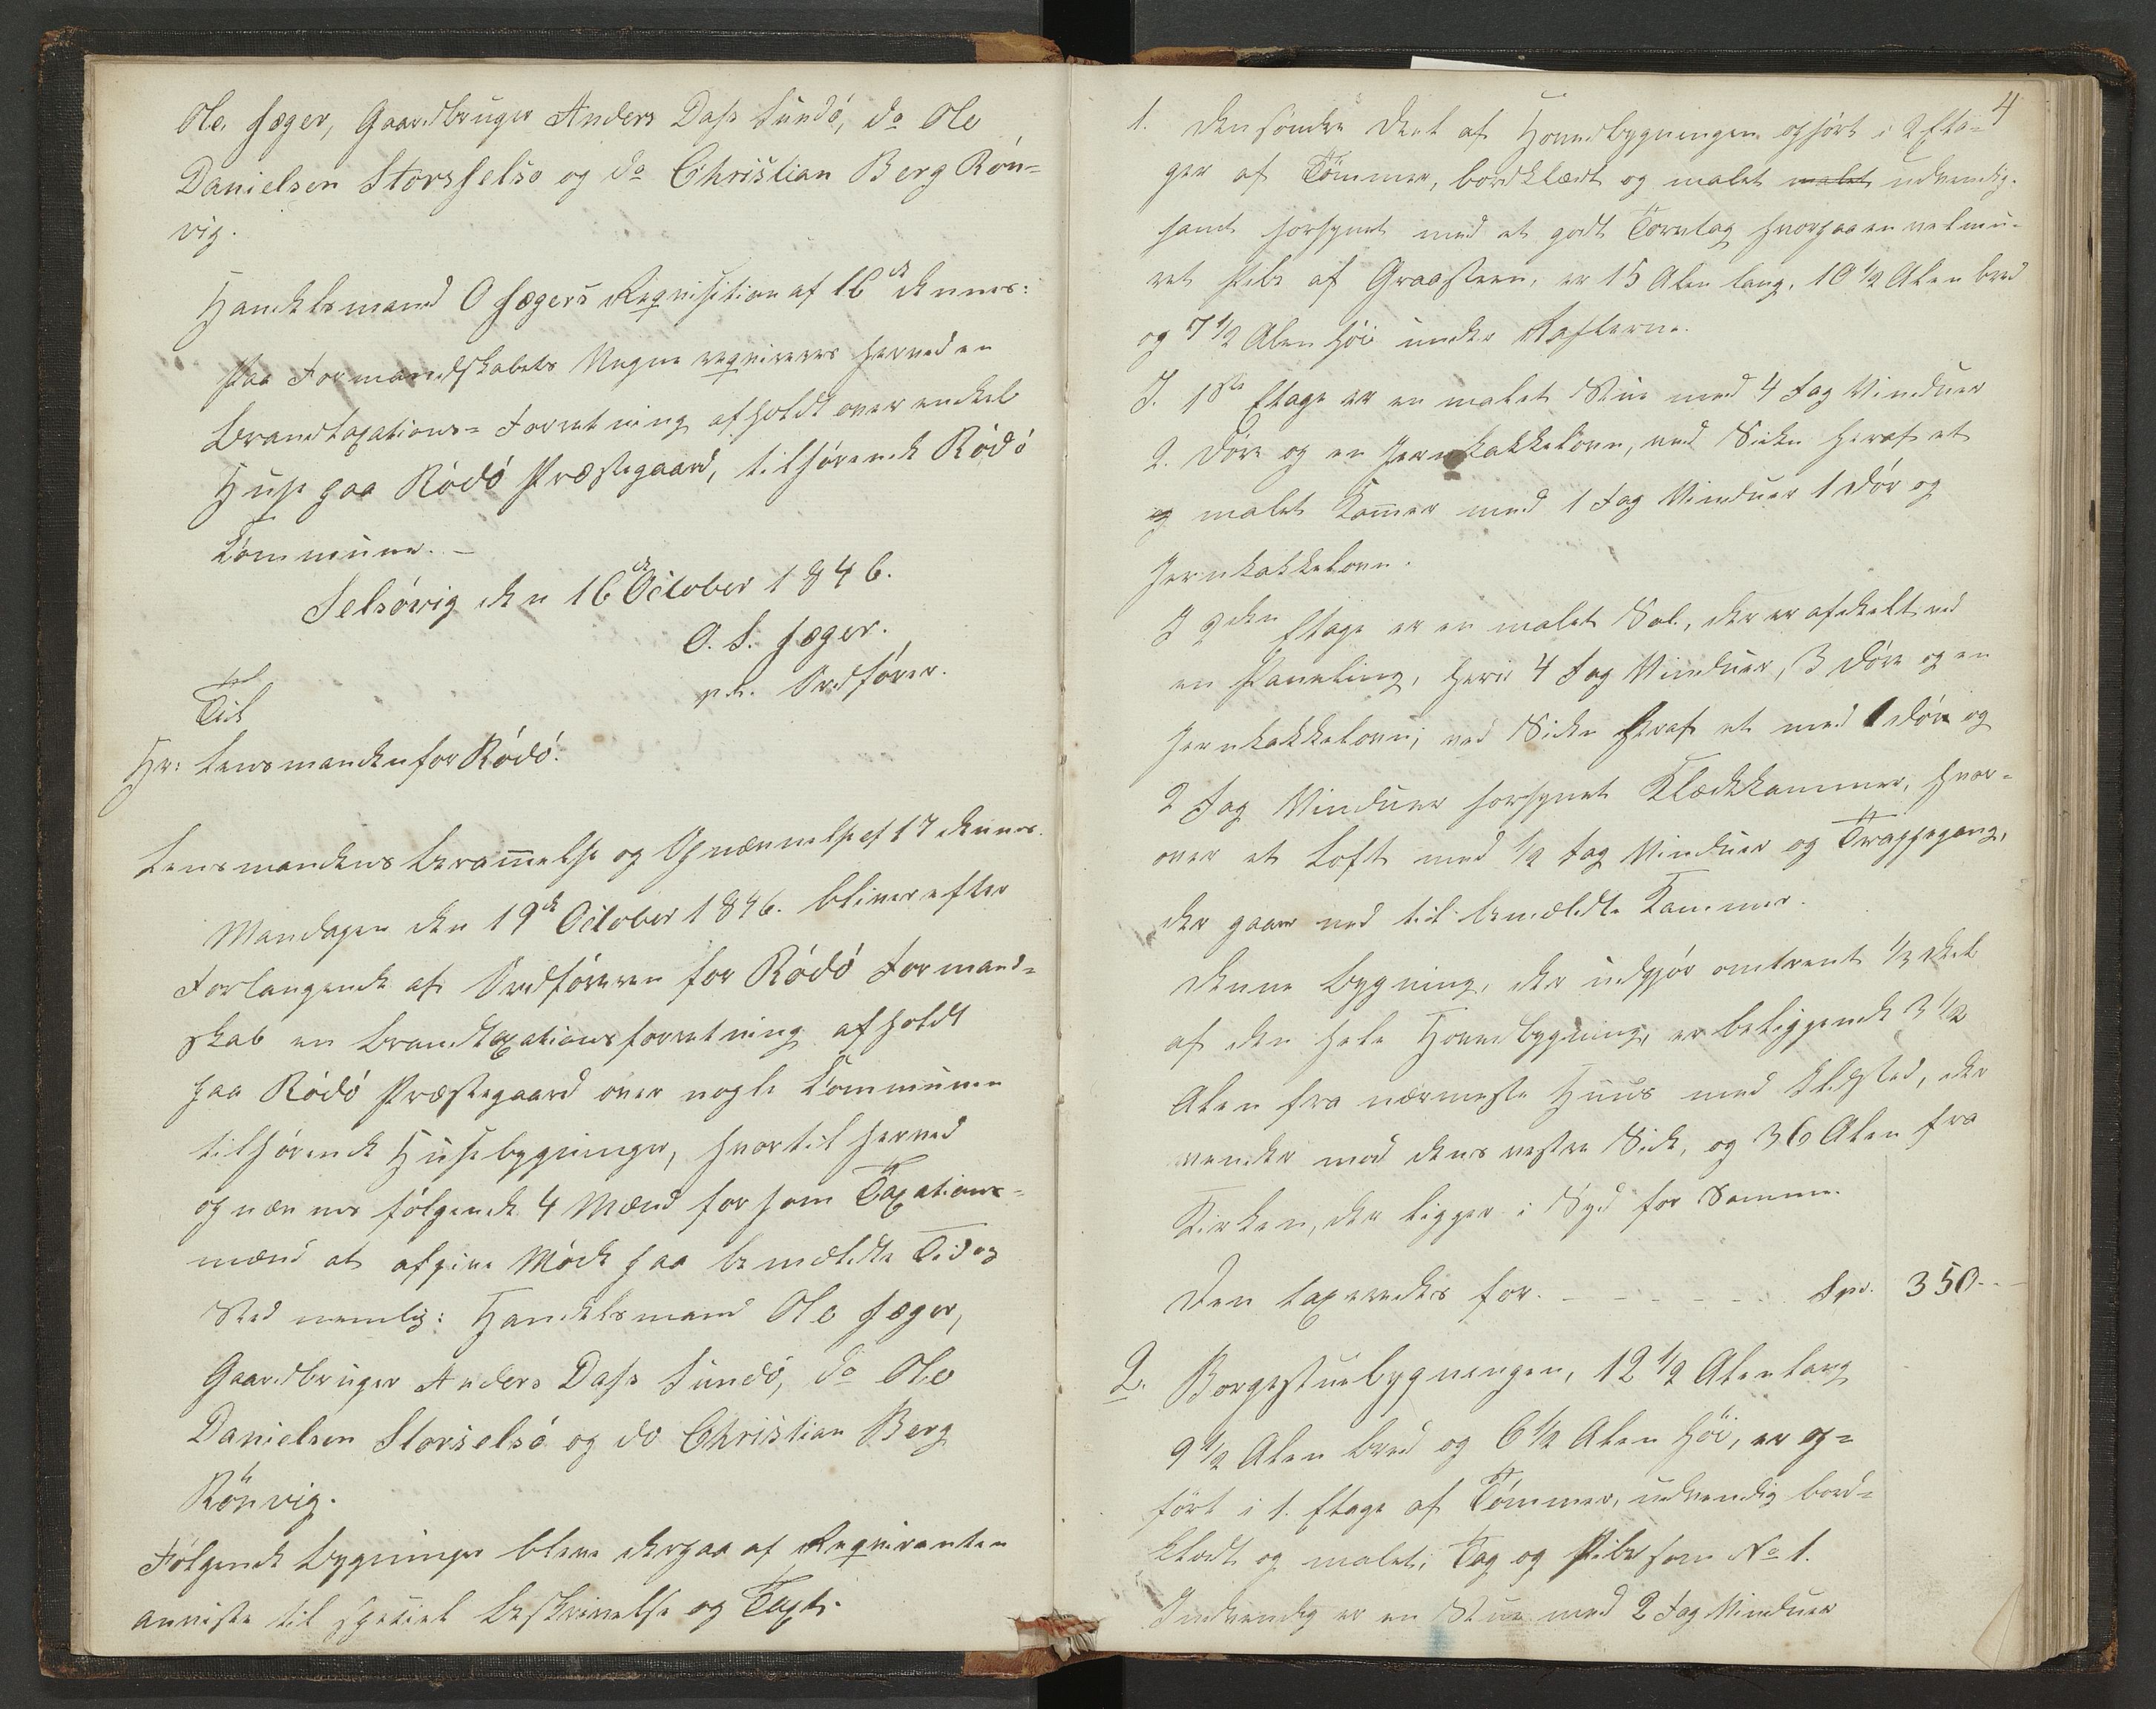 Ole Jæger, Gaardbruger Anders Dass Sundö, do Ole
Danielsen Storsselsö og do Christian Berg Rön=
vig.
Handelsmand O Jægers Requisition af 16de dennes:
Paa Formandskabets Vegne requireres herved en
Brandtaxations= Forretning afholdt over endeel
Huse paa Rödö Præstegaard, tilhörende Rödö
Commune. –
Selsövig den 16de October 1846.
O. S. Jæger.
Ordförer.
Til
Hr: Lensmanden for Rödö.
Lensmandens Berammelse og Opnævnelse af 17 dennes.
Mandagen den 19de October 1846. bliver efter
Forlangende af Ordföreren for Rödö Formand=
skab en Brandtaxationsforretning afholdt
paa Rödö Præstegaard over nogle Communen
tilhörende Husebygninger, hvortil herved
opnævnes fölgende 4 Mænd for som Taxations=
mænd at afgive Möde paa bemeldte Tid og
Sted nemlig: Handelsmand Ole Jæger,
Gaardbruger Anders Dass Sundö, do Ole
Danielsen Storselsö og do Christian Berg
Rönvig.
Fölgende Bygninger bleve derpaa af Requirenten
anviste til speciel Beskrivelse og Taxt.
4
1. Den söndre Deel af Hovedbygningen opfört i 2 Eta=
ger af Tömmer, bordklædt og malet malet udvendig.
samt forsynet med et godt Torvtag hvorpaa en velmu=
ret Pibe af Graasteen, er 15 Alen lang, 10 1/2 Alen bred
og 7 1/2 Alen höi under Rafterne.
I. 1ste Etage er en malet Stue med 4 Fag Vinduer
2. Döre og en Jernkakkelovn, ved Siden heraf et
malet Kammer med 1 Fag Vinduer 1 Dör og
Jernkakkelovn.
I 2den Etage er en malet Sal, der er afdeelt ved
en Paneling, heri 4 Fag Vinduer, 3 Döre og en
Jernkakkelovn; ved Siden heraf et med 1 Dör og
2 Fag Vinduer forsynet Klædekammer, hvor=
over et Loft med 1/2 Fag Vinduer og Trappegang,
der gaar ned til bemeldte Kammer.
Denne Bygning, der udgjör omtrent 1/3 Deel
af den hele Hovedbygning, er beliggende 3 1/2
Alen fra nærmeste Huus med Ildsted, der
vender mod dens vestre Side, og 36 Alen fra
Kirken, der ligger i Syd for Samme.
Den taxeredes for. – – – – – – Spd. 350. –
2. Borgestuebygningen, 12 1/2 Alen lang
9 1/2 Alen bred og 6 1/2 Alen höi, er op=
fört i 1. Etage af Tömmer, udvendig bord=
klædt og malet; Tag og Pibe som No 1.
Indvendig er en Stue med 2 Fag Vinduer